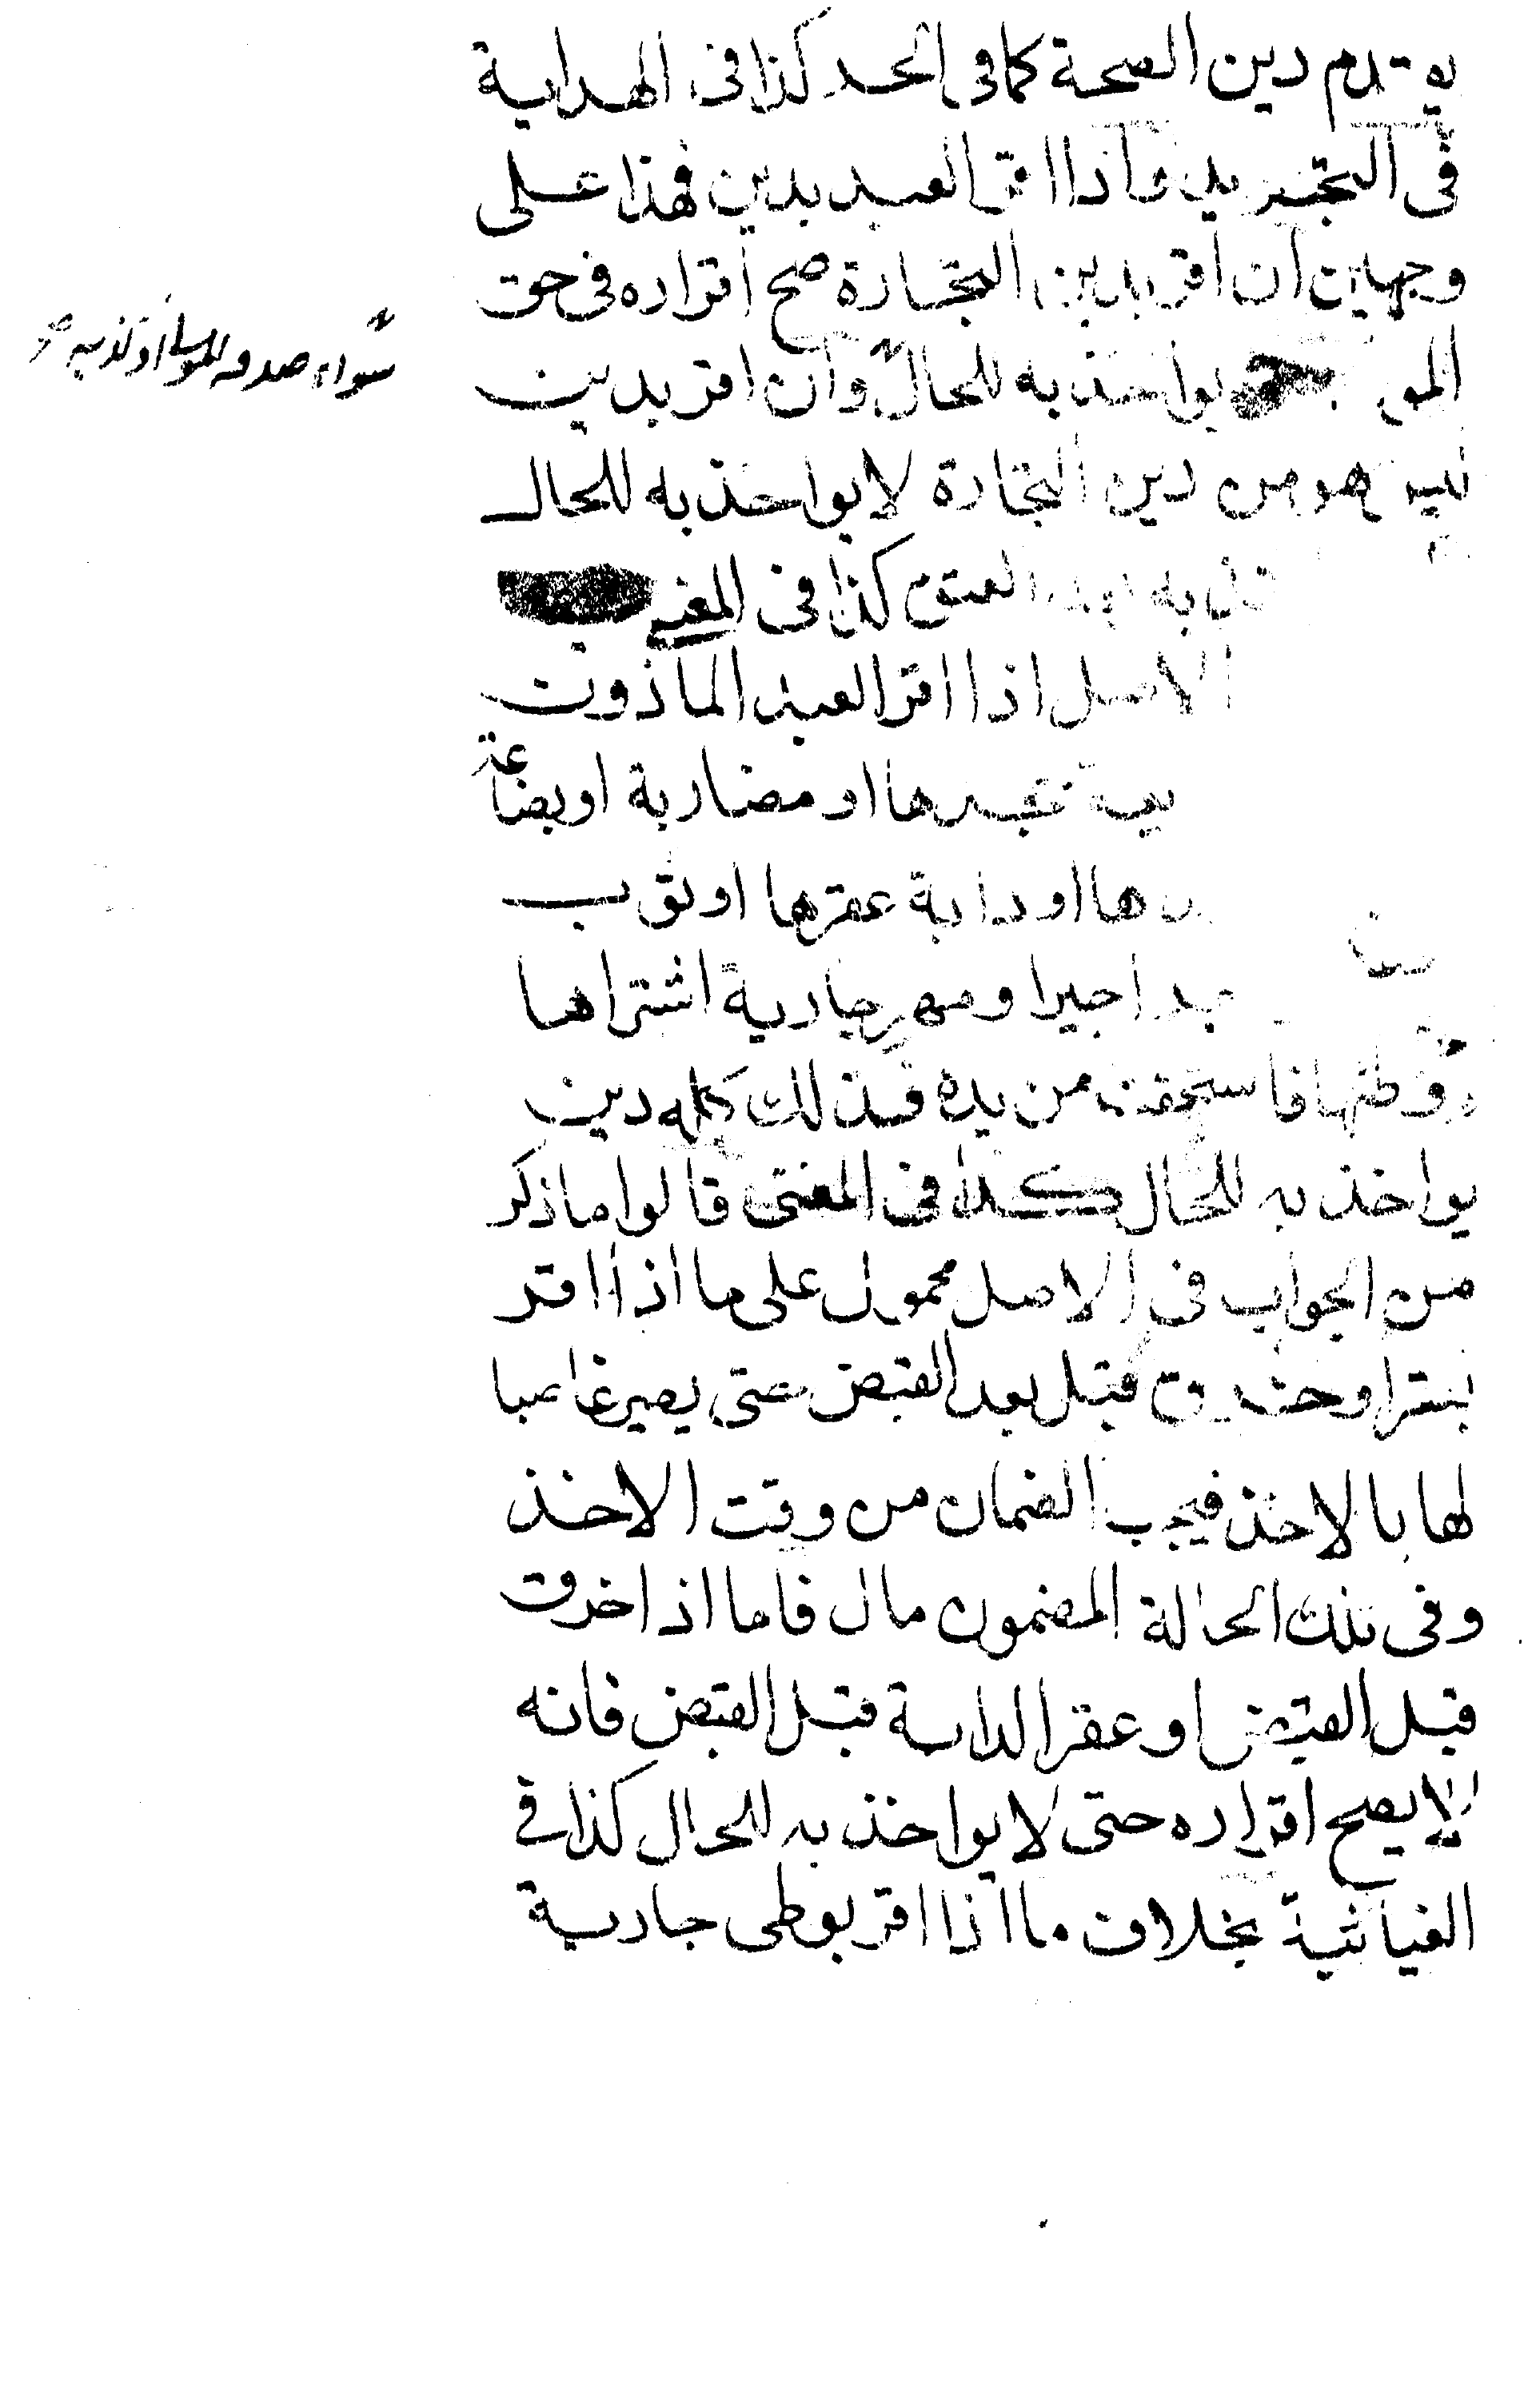 يقدم دين الصحة كما في الحر كذا في الهداية
في التجريد واذا اقر العبد بدين فهذا على
وجهين ان اقر بدين التجارة صح اقراره في حق
المولى يواخذ به للحال وان اقر بدين
سواء صدقه المولى او كذبه صح
ليس هو من دين التجارة لا يواخذ به للحال
به بعد العتق كذا في المغني
الاصل اذا اقر العبد الماذون
جحدها او مضاربة او بضاعة
او دابة عقرها او ثوب
اجير او مهر جارية اشتراها
ووطئها فاستحقت من يده فذلك كله دين
يواخذ به للحال كذا في المغني قالوا ما ذكر
من الجواب في الاصل محمول على ما اذا اقر
قبل بعد القبض حتى يصير غاصبا
لها بالاخذ فيجب الضمان من وقت الاخذ
وفي تلك الحالة المضمون مال فاما اذا خرق
قبل القبض او عقر الدابة قبل القبض فانه
لا يصح اقراره حتى لا يواخذ به للحال كذا في
الغياثية بخلاف ما اذا اقر بوطي جارية